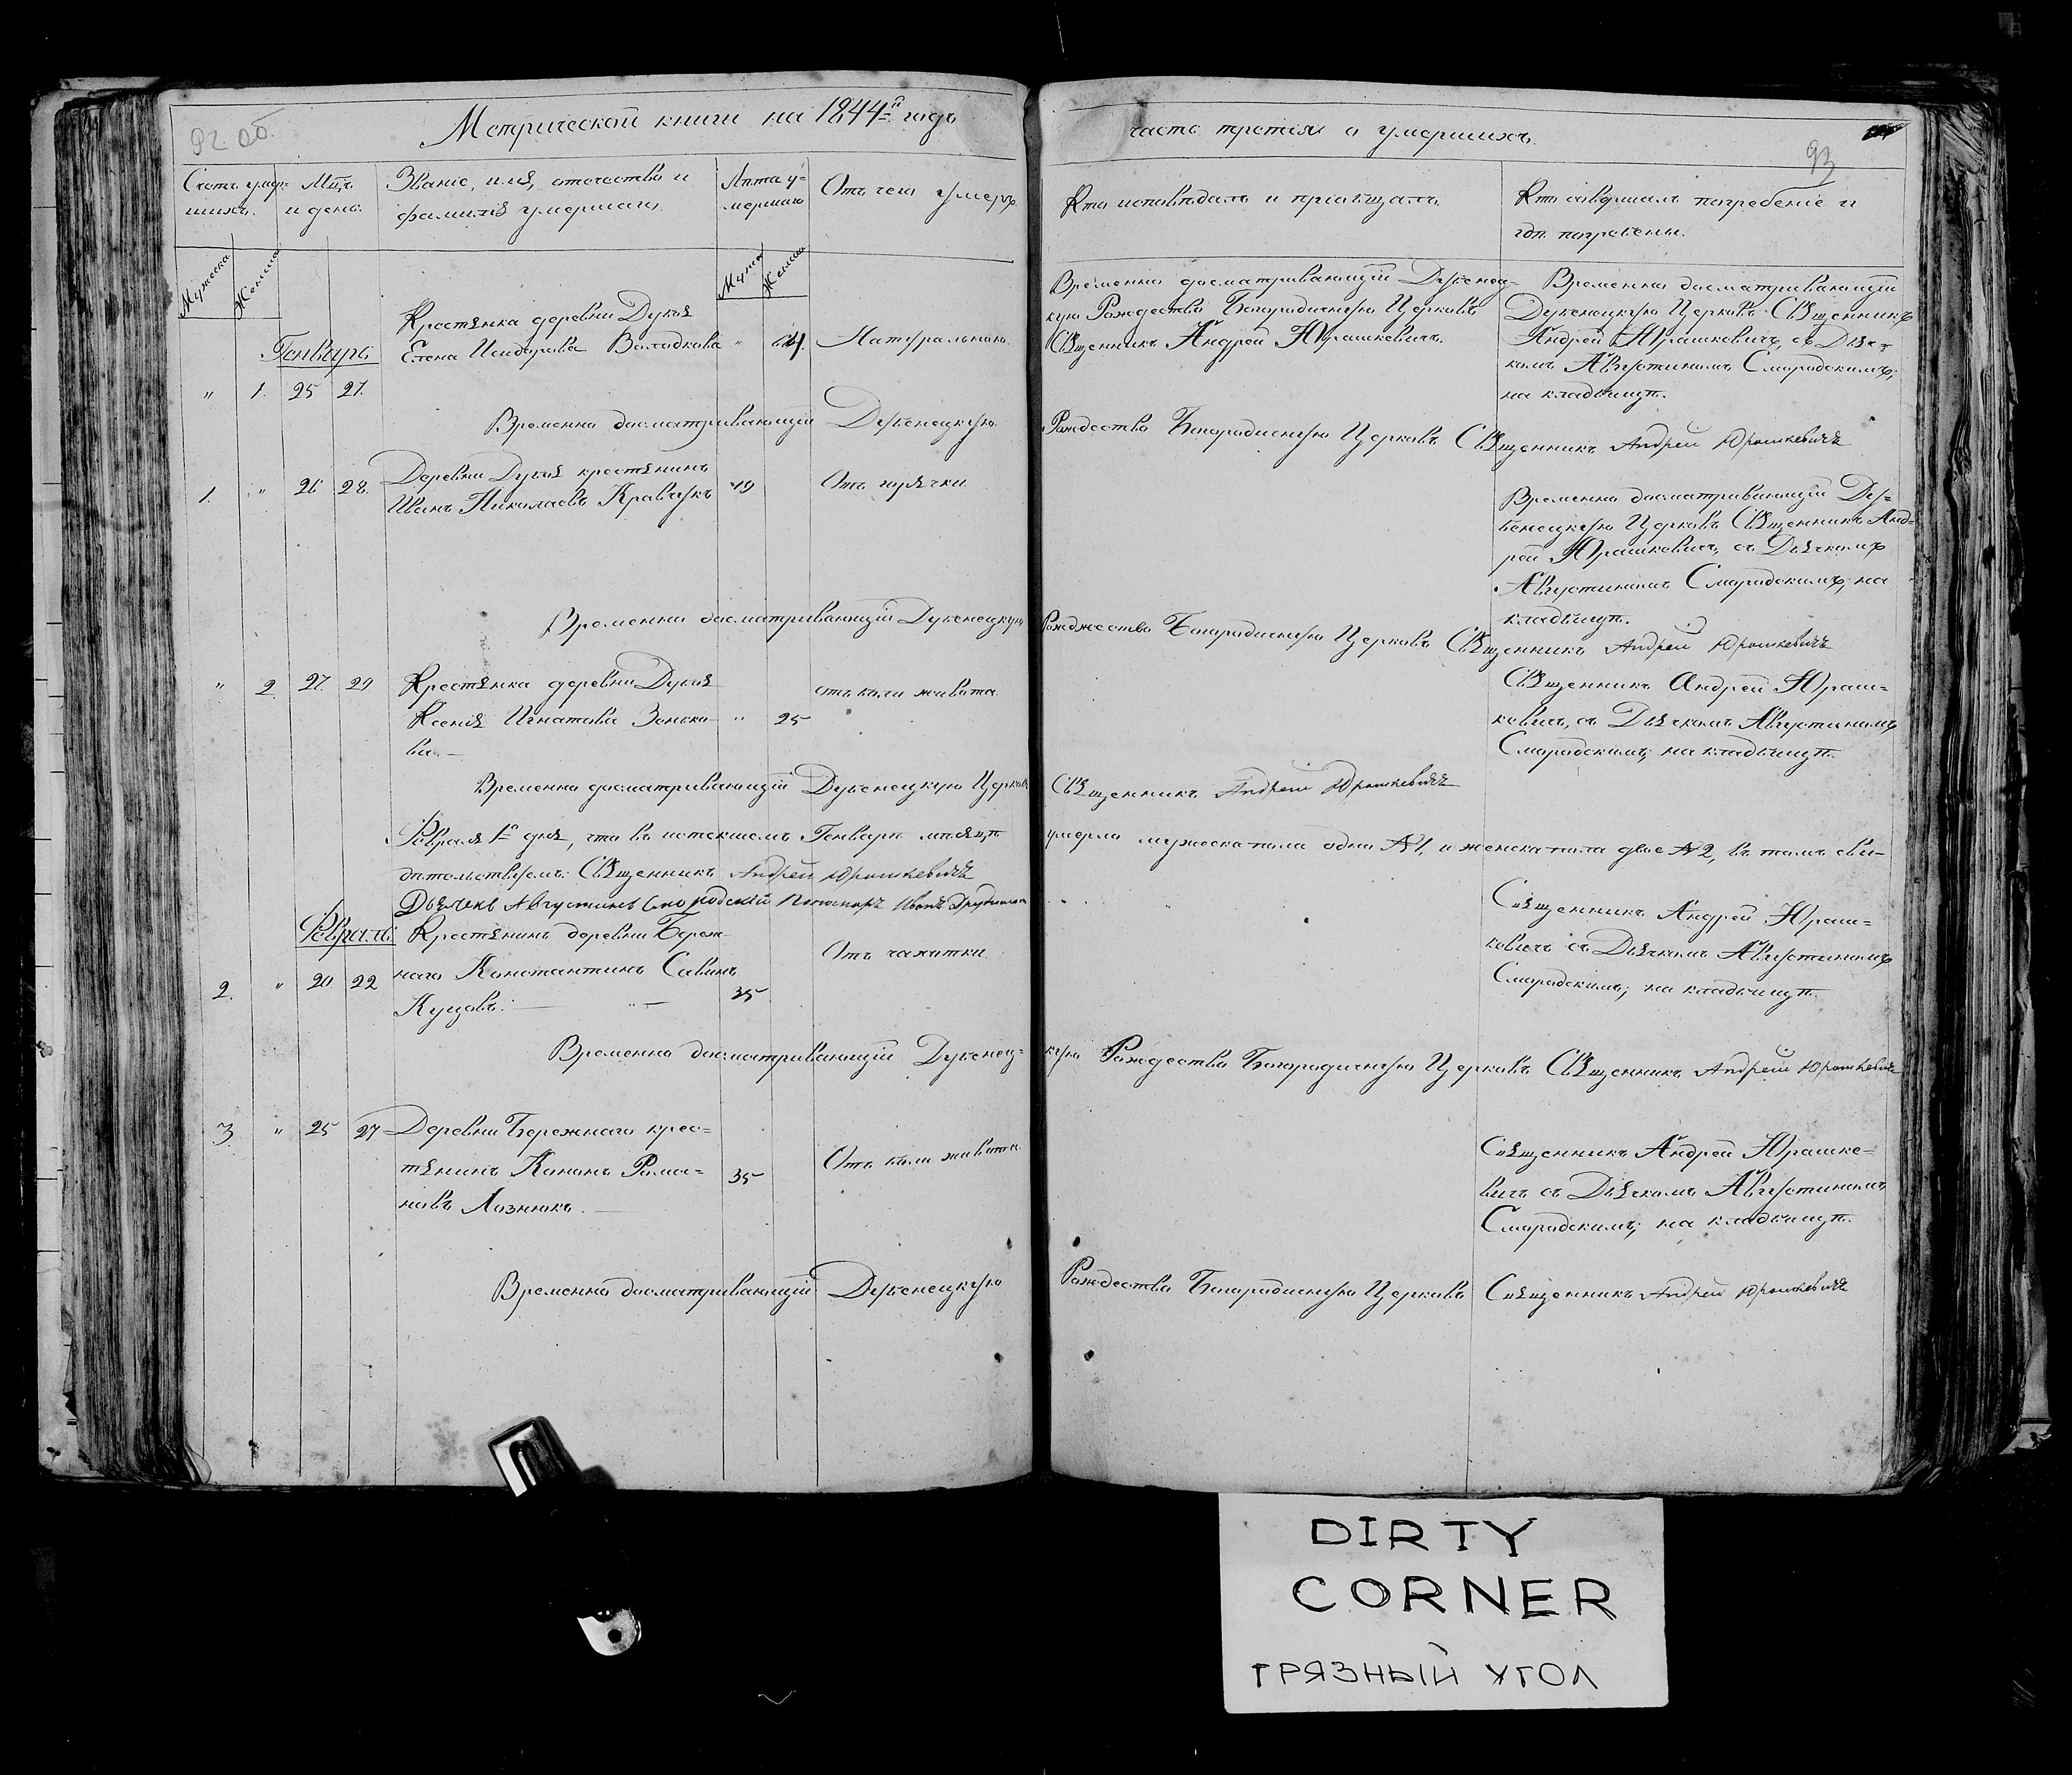 92 об.
Метрической книги на 1844й годъ
часть третія о умершихъ.
93
Счетъ умер-
шихъ.
Мцъ
и день.
Званіе, имя, отечество и
фамилія умершаго.
Лѣта у-
мершаго
Отъ чего умеръ.
Кто исповѣдалъ и пріобщалъ.
Кто совершалъ погребеніе и
гдѣ погребены.
Мужеска
Женска
Мужеска
Женска
Генварь
" 1. 25 27.
Крестянка деревни Дубоя
Елена Исидорова Володкова "
Натуральною.
Временно досматривающій Дубенец-
кую Рождество Богородичную Церковь
Священникъ Андрей Юрашкевичъ.
Временно досматривающій
Дубенецкую Церковь Священникъ
Андрей Юрашкевичъ, съ Дьяч-
комъ Августиномъ Смородскимъ;
на кладбищѣ.
Временно досматривающій Дубенецкую Рождество Богородичную Церковь Священникъ Андрей Юрашкевичъ
1. " 26 28.
Деревни Дубоя крестянинъ
Иванъ Николаевъ Кравчукъ
Отъ горячки
Временно досматривающій Ду-
бенецкую Церковь Священникъ Анд-
рей Юрашкевичъ, съ Дьячкомъ
Августиномъ Смородскимъ; на
кладбищѣ.
Временно досматривающій Дубенецкую Рождество Богородичную Церковь Священникъ Андрей Юрашкевичъ
" 2 27. 29
Крестянка деревни Дубоя
Ксенія Игнатова Зенко- " 25
ва. —
отъ боли живота.
Священникъ Андрей Юраш-
кевичъ, съ Дьячкомъ Августиномъ
Смородскимъ; на кладбищѣ.
Временно досматривающій Дубенецкую Церковь Священникъ Андрей Юрашкевичъ
Февраля 1го дня, что въ истекшемъ Генварѣ мѣсяцѣ умерло мужеска пола одно №1, и женска пола двое №2, въ томъ сви-
дѣтельствуемъ: Священникъ Андрей Юрашкевичъ
Дьячекъ Августинъ Смородскій Пономарь Иванъ
Февраль
2. " 20 22
Крестянинъ деревни Береж-
наго Константинъ Савинъ
Куцовъ. — 35
Отъ чахотки
Священникъ Андрей Юраш-
кевичъ съ Дьячкомъ Августиномъ
Смородскимъ; на кладбищѣ.
Временно досматривающій Дубенец-кую Рождество Богородичную Церковь Священникъ Андрей Юрашкевичъ
3. " 25 27
Деревни Бережнаго крес-
тянинъ Кононъ Рома- 35
новъ Лознюкъ. —
Отъ боли живота.
Священникъ Андрей Юрашке-
вичъ съ Дьячкомъ Августиномъ
Смородскимъ; на кладбищѣ.
Временно досматривающій Дубенецкую Рождество Богородичную Церковь Священникъ Андрей Юрашкевичъ
DIRTY
CORNER
ГРЯЗНЫЙ УГОЛ